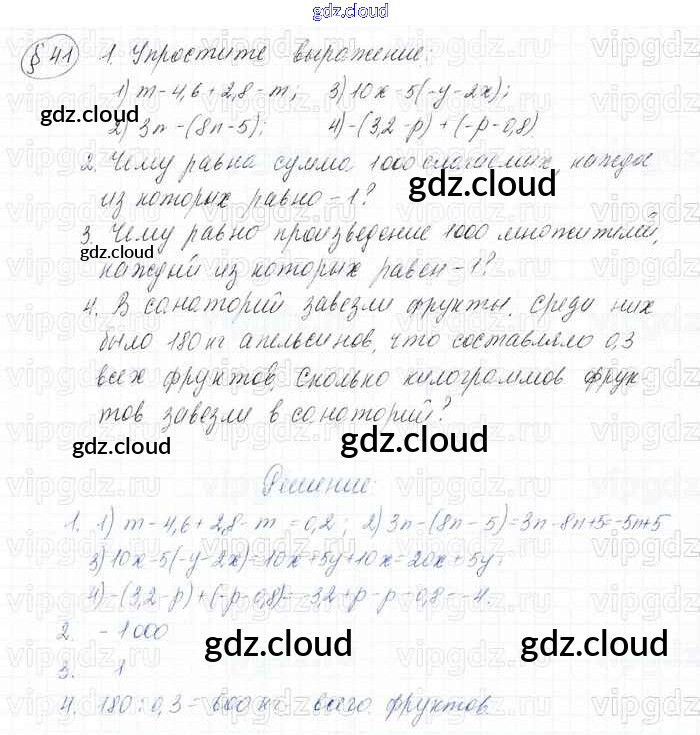 gdz.cloud
§ 41 1. Упростите выражение:
1) m-4,6+2,8-m; 3) 10x-5(-y-2x);
gdz.cloud
2) 3n-(8n-5); 4) -(3,2-p)+(-p-0,8).
2. Чему равна сумма 1000 слагаемых, каждое
gdz.cloud
из которых равно -1?
3. Чему равно произведение 1000 множителей,
gdz.cloud
каждый из которых равен -1?
4. В санаторий завезли фрукты, среди них
было 180 кг апельсинов, что составляло 0,3
всех фруктов. Сколько килограммов фрук-
тов завезли в санаторий?
gdz.cloud
gdz.cloud
Решение:
1. 1) m-4,6+2,8-m=0,2; 2) 3n-(8n-5)=3n-8n+5=-5n+5
3) 10x-5(-y-2x)=10x+5y+10x=20x+5y;
4) -(3,2-p)+(-p-0,8)=-3,2+p-p-0,8=-4.
2. -1000
gdz.cloud
gdz.cloud
3. 1
4. 180:0,3=600 кг - всего фруктов.
gdz.cloud